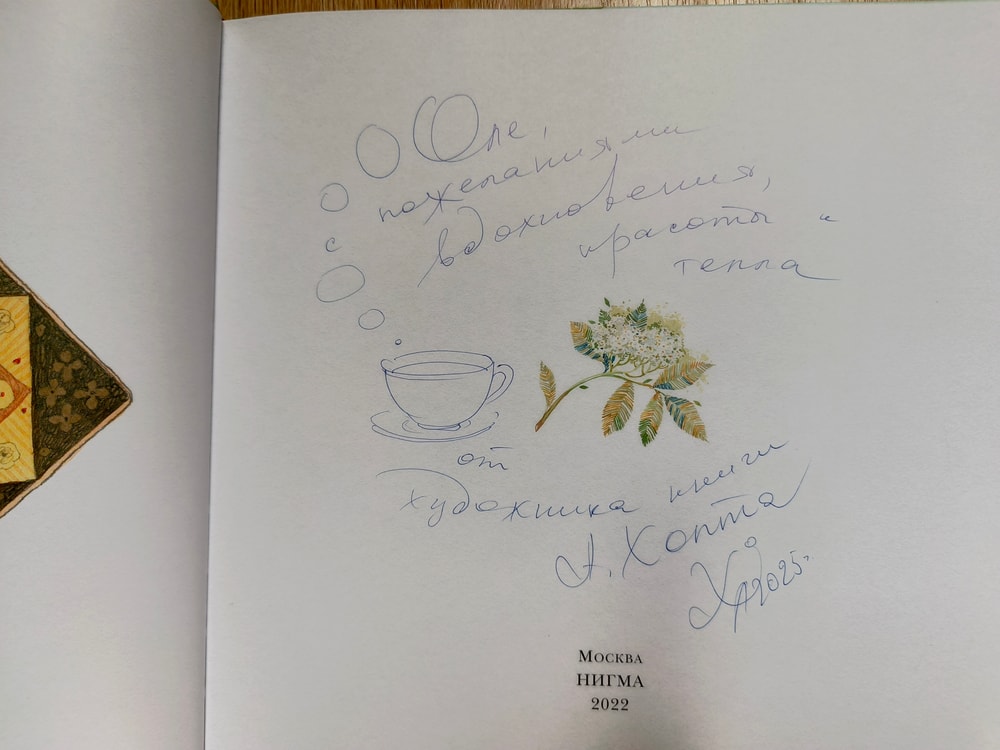 Оле,
с пожеланиями
вдохновения,
красоты и
тепла
от
художника книги
А. Хопта
2025г.
Москва
НИГМА
2022